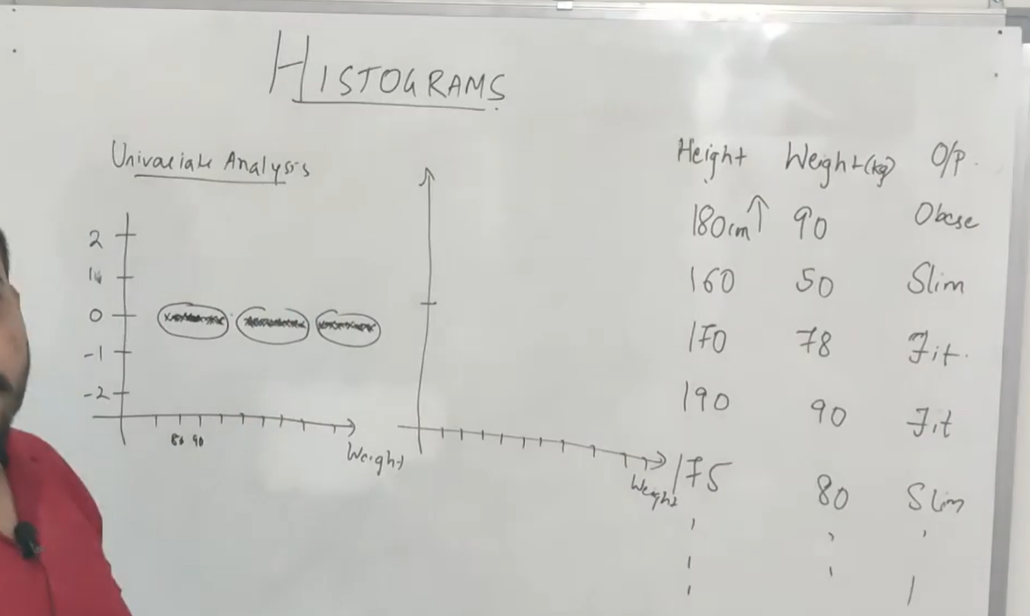 HISTOGRAMS
Univariate Analysis
2
0
-1
-2
80 90
Weight
Weight
Height Weight(kg) O/P.
180cm↑ 90 Obese
160 50 Slim
170 78 Fit.
190 90 Fit
175 80 Slim